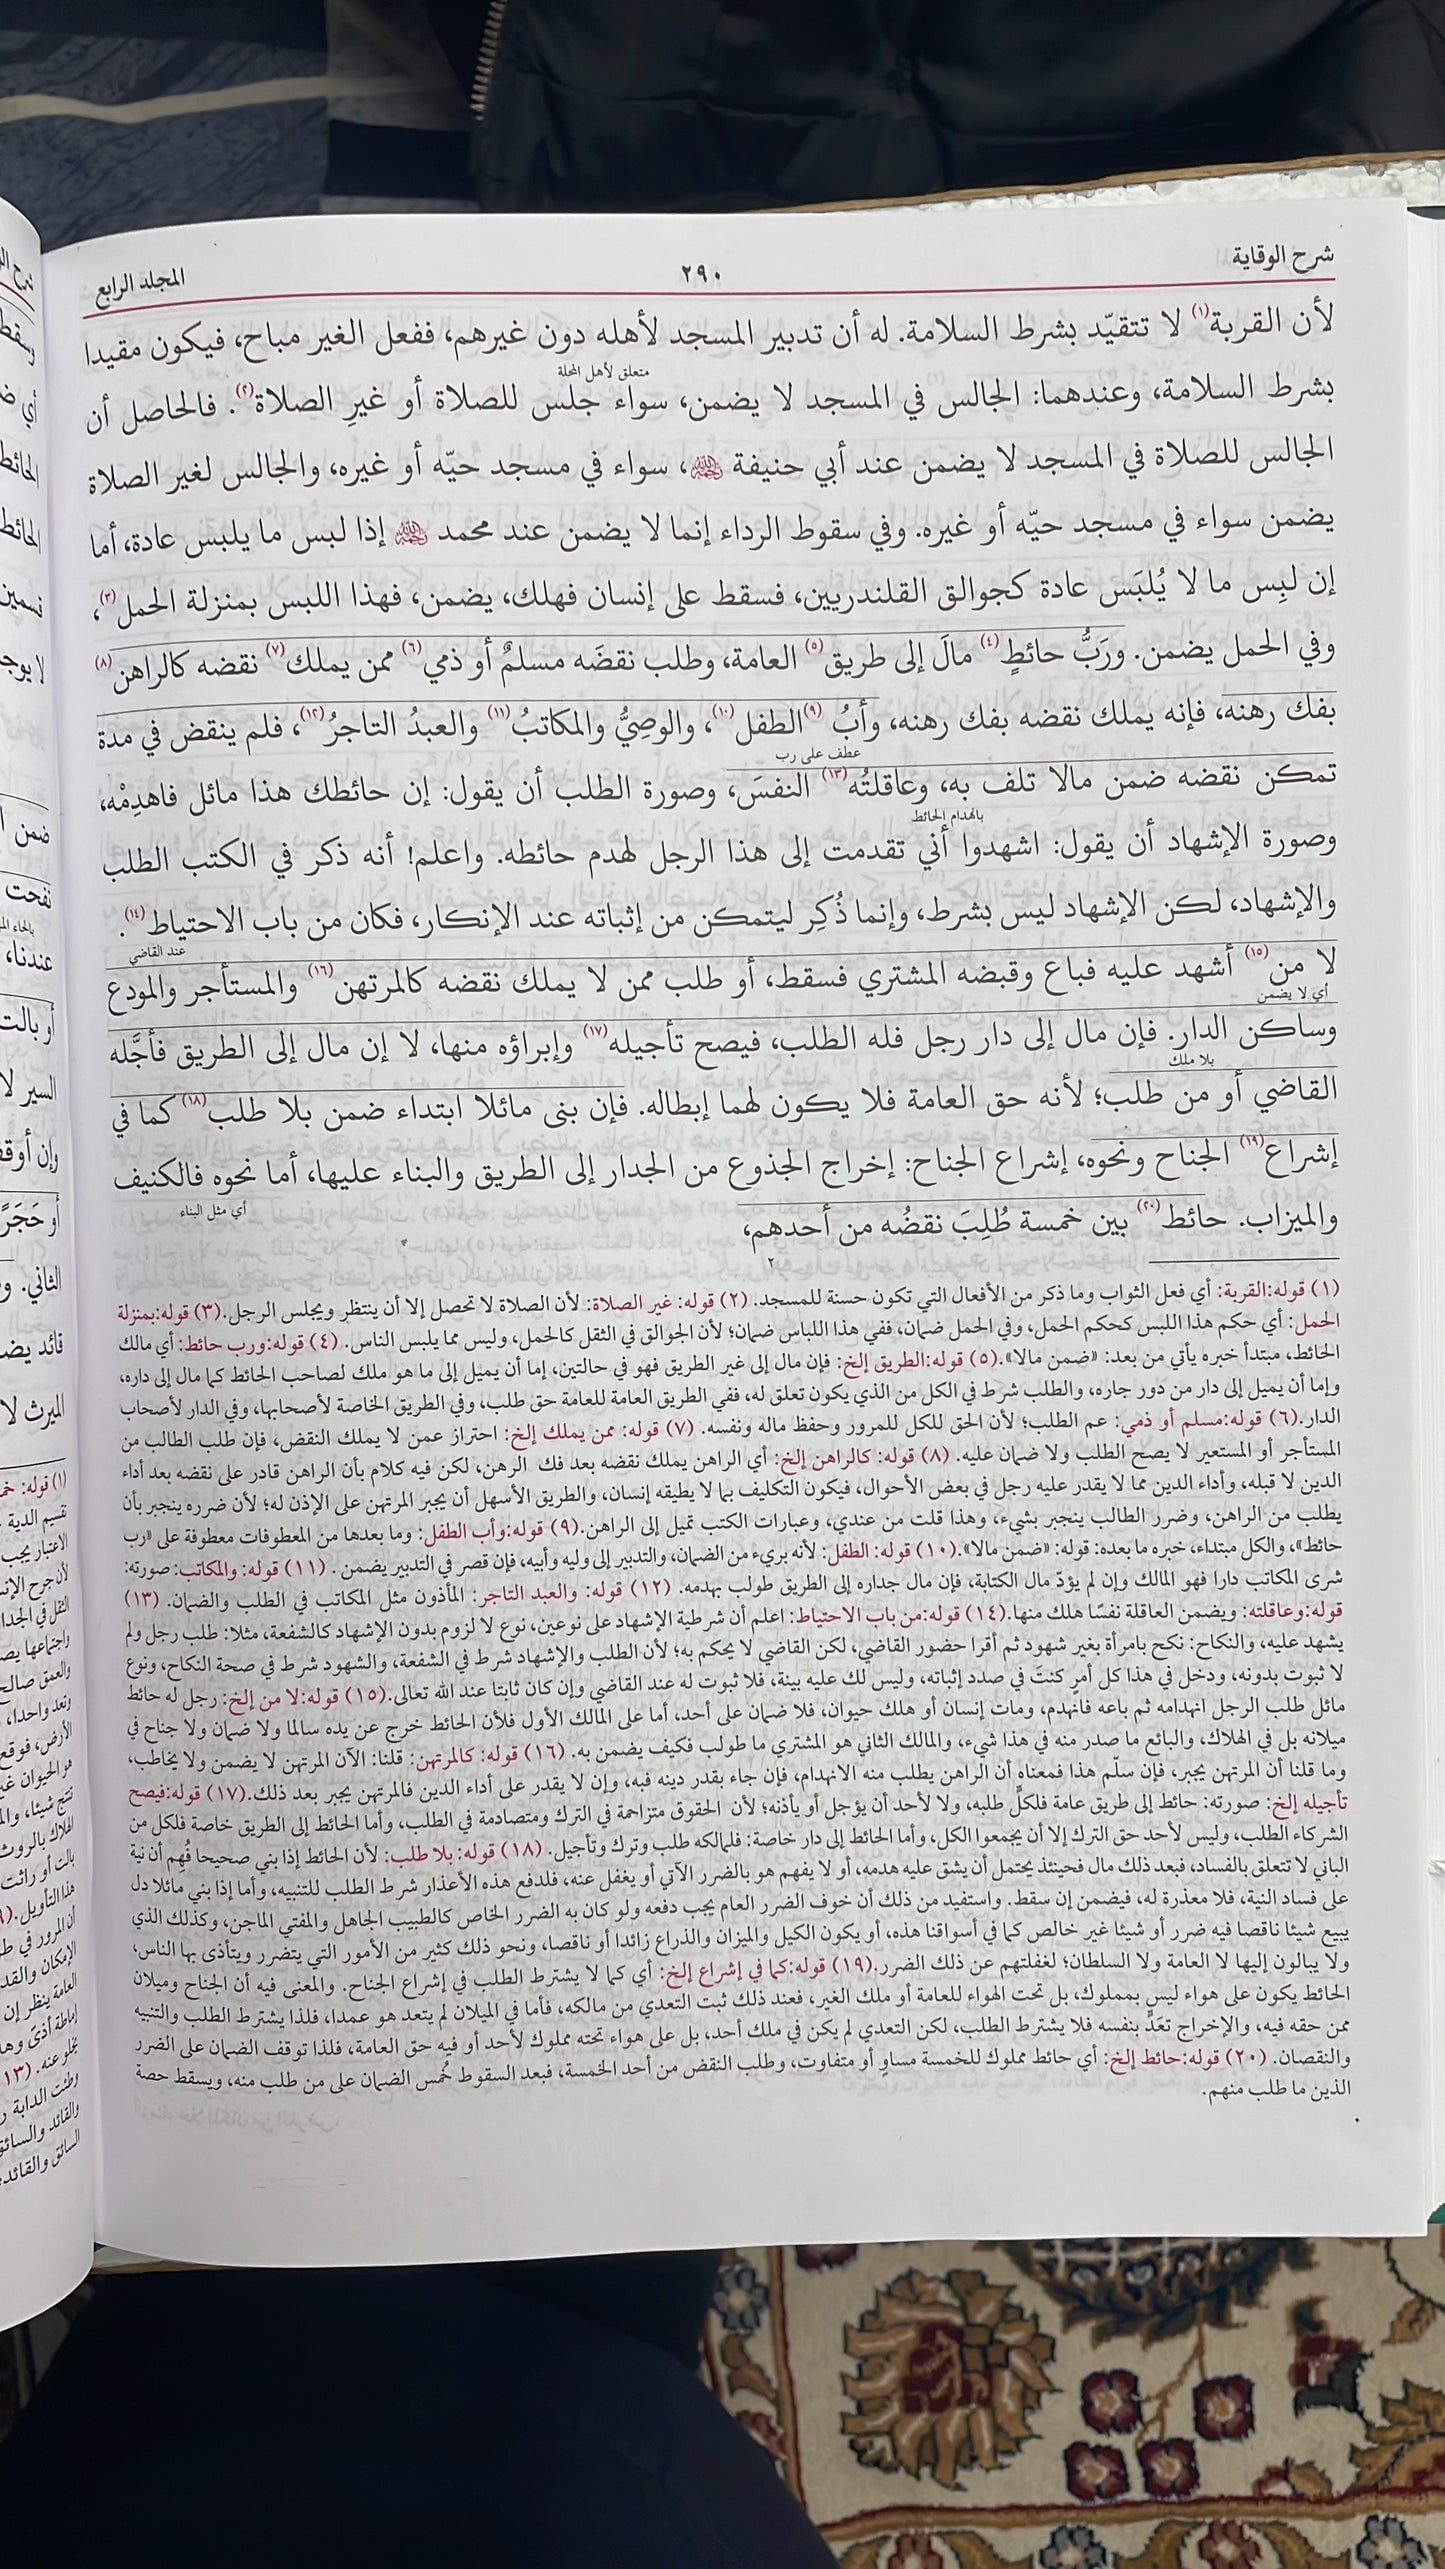 شرح الوقاية
٢٩٠
المجلد الرابع
لأن القربة(١) لا تتقيّد بشرط السلامة. له أن تدبير المسجد لأهله دون غيرهم، ففعل الغير مباح، فيكون مقيدا
متعلق لأهل المحلة
بشرط السلامة، وعندهما: الجالس في المسجد لا يضمن، سواء جلس للصلاة أو غيرِ الصلاة(٢). فالحاصل أن
الجالس للصلاة في المسجد لا يضمن عند أبي حنيفة ﷫، سواء في مسجد حيّه أو غيره، والجالس لغير الصلاة
يضمن سواء في مسجد حيّه أو غيره. وفي سقوط الرداء إنما لا يضمن عند محمد ﷫ إذا لبس ما يلبس عادة، أما
إن لبِس ما لا يُلبَس عادة كجوالق القلندريين، فسقط على إنسان فهلك، يضمن، فهذا اللبس بمنزلة الحمل(٣)،
وفي الحمل يضمن. ورَبُّ حائطٍ(٤) مالَ إلى طريق(٥) العامة، وطلب نقضَه مسلمٌ أو ذمي(٦) ممن يملك(٧) نقضه كالراهن(٨)
بفك رهنه، فإنه يملك نقضه بفك رهنه، وأبُ(٩) الطفل(١٠)، والوصِيُّ والمكاتبُ(١١) والعبدُ التاجرُ(١٢)، فلم ينقض في مدة
عطف على رب
تمكن نقضه ضمن مالا تلف به، وعاقلتُه(١٣) النفسَ، وصورة الطلب أن يقول: إن حائطك هذا مائل فاهدِمْه،
بانهدام الحائط
وصورة الإشهاد أن يقول: اشهدوا أني تقدمت إلى هذا الرجل لهدم حائطه. واعلم! أنه ذكر في الكتب الطلب
والإشهاد، لكن الإشهاد ليس بشرط، وإنما ذُكِر ليتمكن من إثباته عند الإنكار، فكان من باب الاحتياط(١٤).
عند القاضي
لا من(١٥) أشهد عليه فباع وقبضه المشتري فسقط، أو طلب ممن لا يملك نقضه كالمرتهن(١٦) والمستأجر والمودع
أي لا يضمن
وساكن الدار. فإن مال إلى دار رجل فله الطلب، فيصح تأجيله(١٧) وإبراؤه منها، لا إن مال إلى الطريق فأجَّله
بلا ملك
القاضي أو من طلب؛ لأنه حق العامة فلا يكون لهما إبطاله. فإن بنى مائلا ابتداء ضمن بلا طلب(١٨) كما في
إشراع(١٩) الجناح ونحوه، إشراع الجناح: إخراج الجذوع من الجدار إلى الطريق والبناء عليها، أما نحوه فالكنيف
أي مثل البناء
والميزاب. حائط(٢٠) بين خمسة طُلِبَ نقضُه من أحدهم،
٢
(١) قوله:القربة: أي فعل الثواب وما ذكر من الأفعال التي تكون حسنة للمسجد. (٢) قوله: غير الصلاة: لأن الصلاة لا تحصل إلا أن ينتظر ويجلس الرجل.(٣) قوله:بمنزلة
الحمل: أي حكم هذا اللبس كحكم الحمل، وفي الحمل ضمان، ففي هذا اللباس ضمان؛ لأن الجوالق في الثقل كالحمل، وليس مما يلبس الناس. (٤) قوله:ورب حائط: أي مالك
الحائط، مبتدأ خبره يأتي من بعد: «ضمن مالا».(٥) قوله:الطريق إلخ: فإن مال إلى غير الطريق فهو في حالتين، إما أن يميل إلى ما هو ملك لصاحب الحائط كما مال إلى داره،
وإما أن يميل إلى دار من دور جاره، والطلب شرط في الكل من الذي يكون تعلق له، ففي الطريق العامة للعامة حق طلب، وفي الطريق الخاصة لأصحابها، وفي الدار لأصحاب
الدار.(٦) قوله:مسلم أو ذمي: عم الطلب؛ لأن الحق للكل للمرور وحفظ ماله ونفسه. (٧) قوله: ممن يملك إلخ: احتراز عمن لا يملك النقض، فإن طلب الطالب من
المستأجر أو المستعير لا يصح الطلب ولا ضمان عليه. (٨) قوله: كالراهن إلخ: أي الراهن يملك نقضه بعد فك الرهن، لكن فيه كلام بأن الراهن قادر على نقضه بعد أداء
الدين لا قبله، وأداء الدين مما لا يقدر عليه رجل في بعض الأحوال، فيكون التكليف بما لا يطيقه إنسان، والطريق الأسهل أن يجبر المرتهن على الإذن له؛ لأن ضرره ينجبر بأن
يطلب من الراهن، وضرر الطالب ينجبر بشيء، وهذا قلت من عندي، وعبارات الكتب تميل إلى الراهن.(٩) قوله:وأب الطفل: وما بعدها من المعطوفات معطوفة على «رب
حائط»، والكل مبتداء، خبره ما بعده: قوله: «ضمن مالا».(١٠) قوله: الطفل: لأنه بريء من الضمان، والتدبير إلى وليه وأبيه، فإن قصر في التدبير يضمن . (١١) قوله: والمكاتب: صورته:
شرى المكاتب دارا فهو المالك وإن لم يؤدّ مال الكتابة، فإن مال جداره إلى الطريق طولب بهدمه. (١٢) قوله: والعبد التاجر: المأذون مثل المكاتب في الطلب والضمان. (١٣)
قوله:وعاقلته: ويضمن العاقلة نفسًا هلك منها.(١٤) قوله:من باب الاحتياط: اعلم أن شرطية الإشهاد على نوعين، نوع لا لزوم بدون الإشهاد كالشفعة، مثلا: طلب رجل ولم
يشهد عليه، والنكاح: نكح بامرأة بغير شهود ثم أقرا حضور القاضي، لكن القاضي لا يحكم به؛ لأن الطلب والإشهاد شرط في الشفعة، والشهود شرط في صحة النكاح، ونوع
لا ثبوت بدونه، ودخل في هذا كل أمر كنتَ في صدد إثباته، وليس لك عليه بينة، فلا ثبوت له عند القاضي وإن كان ثابتا عند الله تعالى.(١٥) قوله:لا من إلخ: رجل له حائط
مائل طلب الرجل انهدامه ثم باعه فانهدم، ومات إنسان أو هلك حيوان، فلا ضمان على أحد، أما على المالك الأول فلأن الحائط خرج عن يده سالما ولا ضمان ولا جناح في
ميلانه بل في الهلاك، والبائع ما صدر منه في هذا شيء، والمالك الثاني هو المشتري ما طولب فكيف يضمن به. (١٦) قوله: كالمرتهن: قلنا: الآن المرتهن لا يضمن ولا يخاطب،
وما قلنا أن المرتهن يجبر، فإن سلّم هذا فمعناه أن الراهن يطلب منه الانهدام، فإن جاء بقدر دينه فبه، وإن لا يقدر على أداء الدين فالمرتهن يجبر بعد ذلك.(١٧) قوله:فيصح
تأجيله إلخ: صورته: حائط إلى طريق عامة فلكلٍّ طلبه، ولا لأحد أن يؤجل أو يأذنه؛ لأن الحقوق متزاحمة في الترك ومتصادمة في الطلب، وأما الحائط إلى الطريق خاصة فلكل من
الشركاء الطلب، وليس لأحد حق الترك إلا أن يجمعوا الكل، وأما الحائط إلى دار خاصة: فلمالكه طلب وترك وتأجيل. (١٨) قوله: بلا طلب: لأن الحائط إذا بني صحيحا فُهِم أن نية
الباني لا تتعلق بالفساد، فبعد ذلك مال فحينئذ يحتمل أن يشق عليه هدمه، أو لا يفهم هو بالضرر الآتي أو يغفل عنه، فلدفع هذه الأعذار شرط الطلب للتنبيه، وأما إذا بني مائلا دل
على فساد النية، فلا معذرة له، فيضمن إن سقط. واستفيد من ذلك أن خوف الضرر العام يجب دفعه ولو كان به الضرر الخاص كالطبيب الجاهل والمفتي الماجن، وكذلك الذي
يبيع شيئا ناقصا فيه ضرر أو شيئا غير خالص كما في أسواقنا هذه، أو يكون الكيل والميزان والذراع زائدا أو ناقصا، ونحو ذلك كثير من الأمور التي يتضرر ويتأذى بها الناس،
ولا يبالون إليها لا العامة ولا السلطان؛ لغفلتهم عن ذلك الضرر.(١٩) قوله:كما في إشراع إلخ: أي كما لا يشترط الطلب في إشراع الجناح. والمعنى فيه أن الجناح وميلان
الحائط يكون على هواء ليس بمملوك، بل تحت الهواء للعامة أو ملك الغير، فعند ذلك ثبت التعدي من مالكه، فأما في الميلان لم يتعد هو عمدا، فلذا يشترط الطلب والتنبيه
ممن حقه فيه، والإخراج تعَدٍّ بنفسه فلا يشترط الطلب، لكن التعدي لم يكن في ملك أحد، بل على هواء تحته مملوك لأحد أو فيه حق العامة، فلذا توقف الضمان على الضرر
والنقصان. (٢٠) قوله:حائط إلخ: أي حائط مملوك للخمسة مساوٍ أو متفاوت، وطلب النقض من أحد الخمسة، فبعد السقوط خُمس الضمان على من طلب منه، ويسقط حصة
الذين ما طلب منهم.